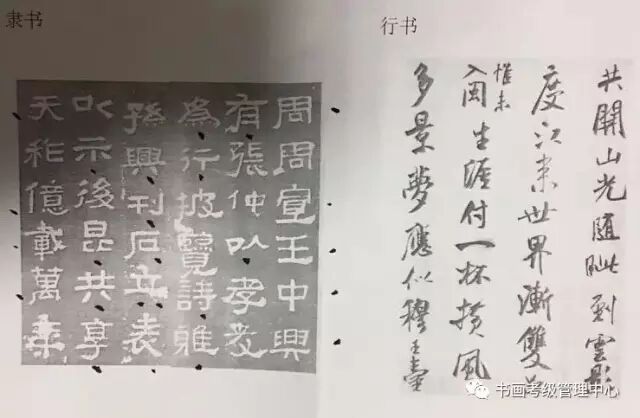 隶书
行书
周周宣王中興
有張仲以孝友
為行披覽詩雅
孫興刊石立表
以示後昆共享
天祚億載萬年
共開山光随眦到雲影
度江來世界漸雙
惟未
入閩生涯付一杯横風
多景夢應似穆王臺
书画考级管理中心